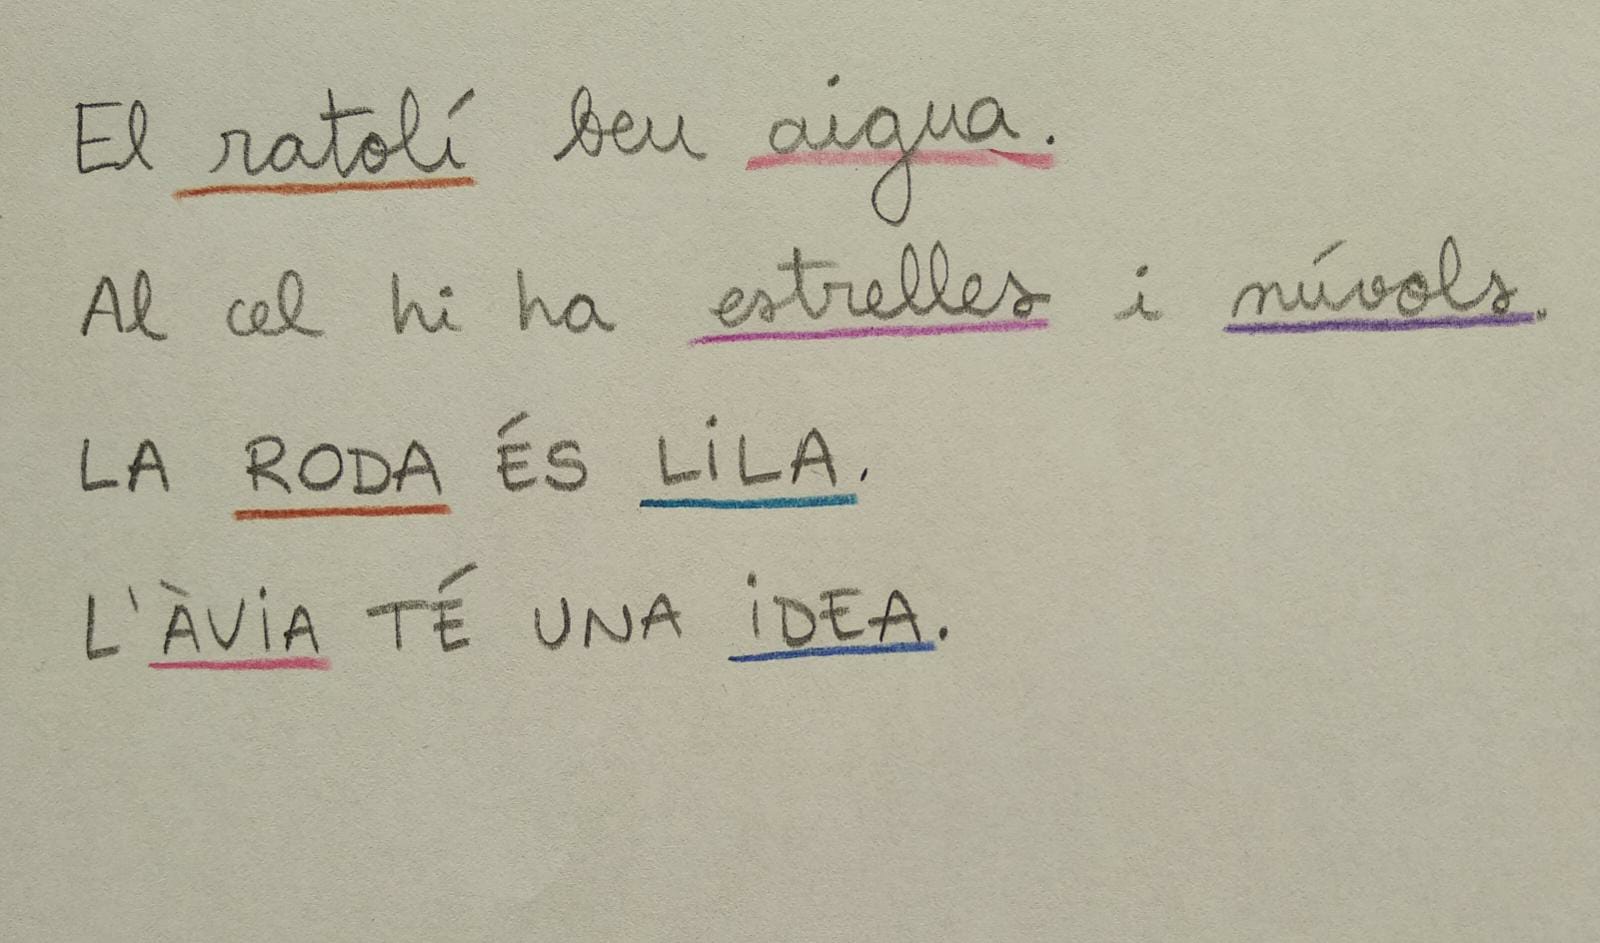 El ratolí beu aigua.
Al cel hi ha estrelles i núvols.
LA RODA ÉS LILA.
L'ÀVIA TÉ UNA IDEA.